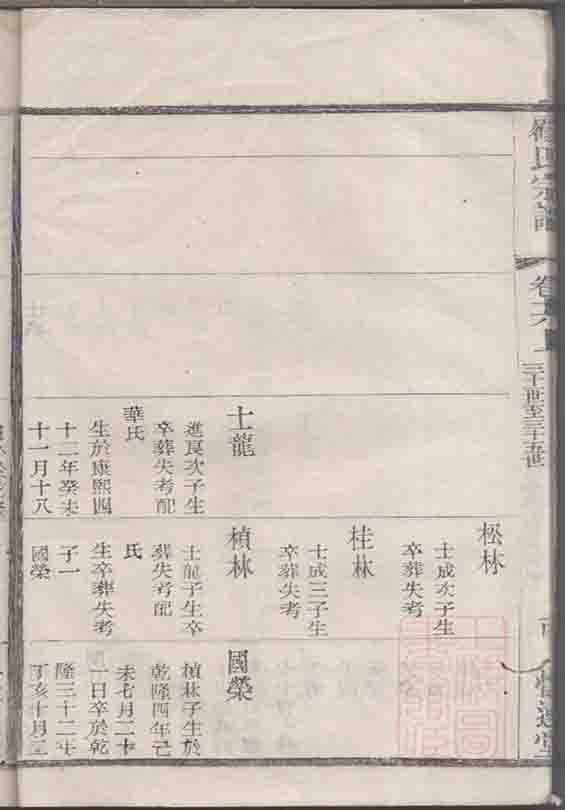 氏宗譜
卷六上
三十世至三十五世
松林
士成次子生
卒葬失考
桂林
士成三子生
卒葬失考
士龍
進良次子生
卒葬失考配
華氏
生於康熙四
十二年癸未
十一月十八
楨林
士龍子生卒
葬失考配
氏
生卒葬失考
子一
國榮
國榮
楨林子生於
乾隆四年己
未七月二十
一日卒於乾
隆三十二年
丁亥十月三